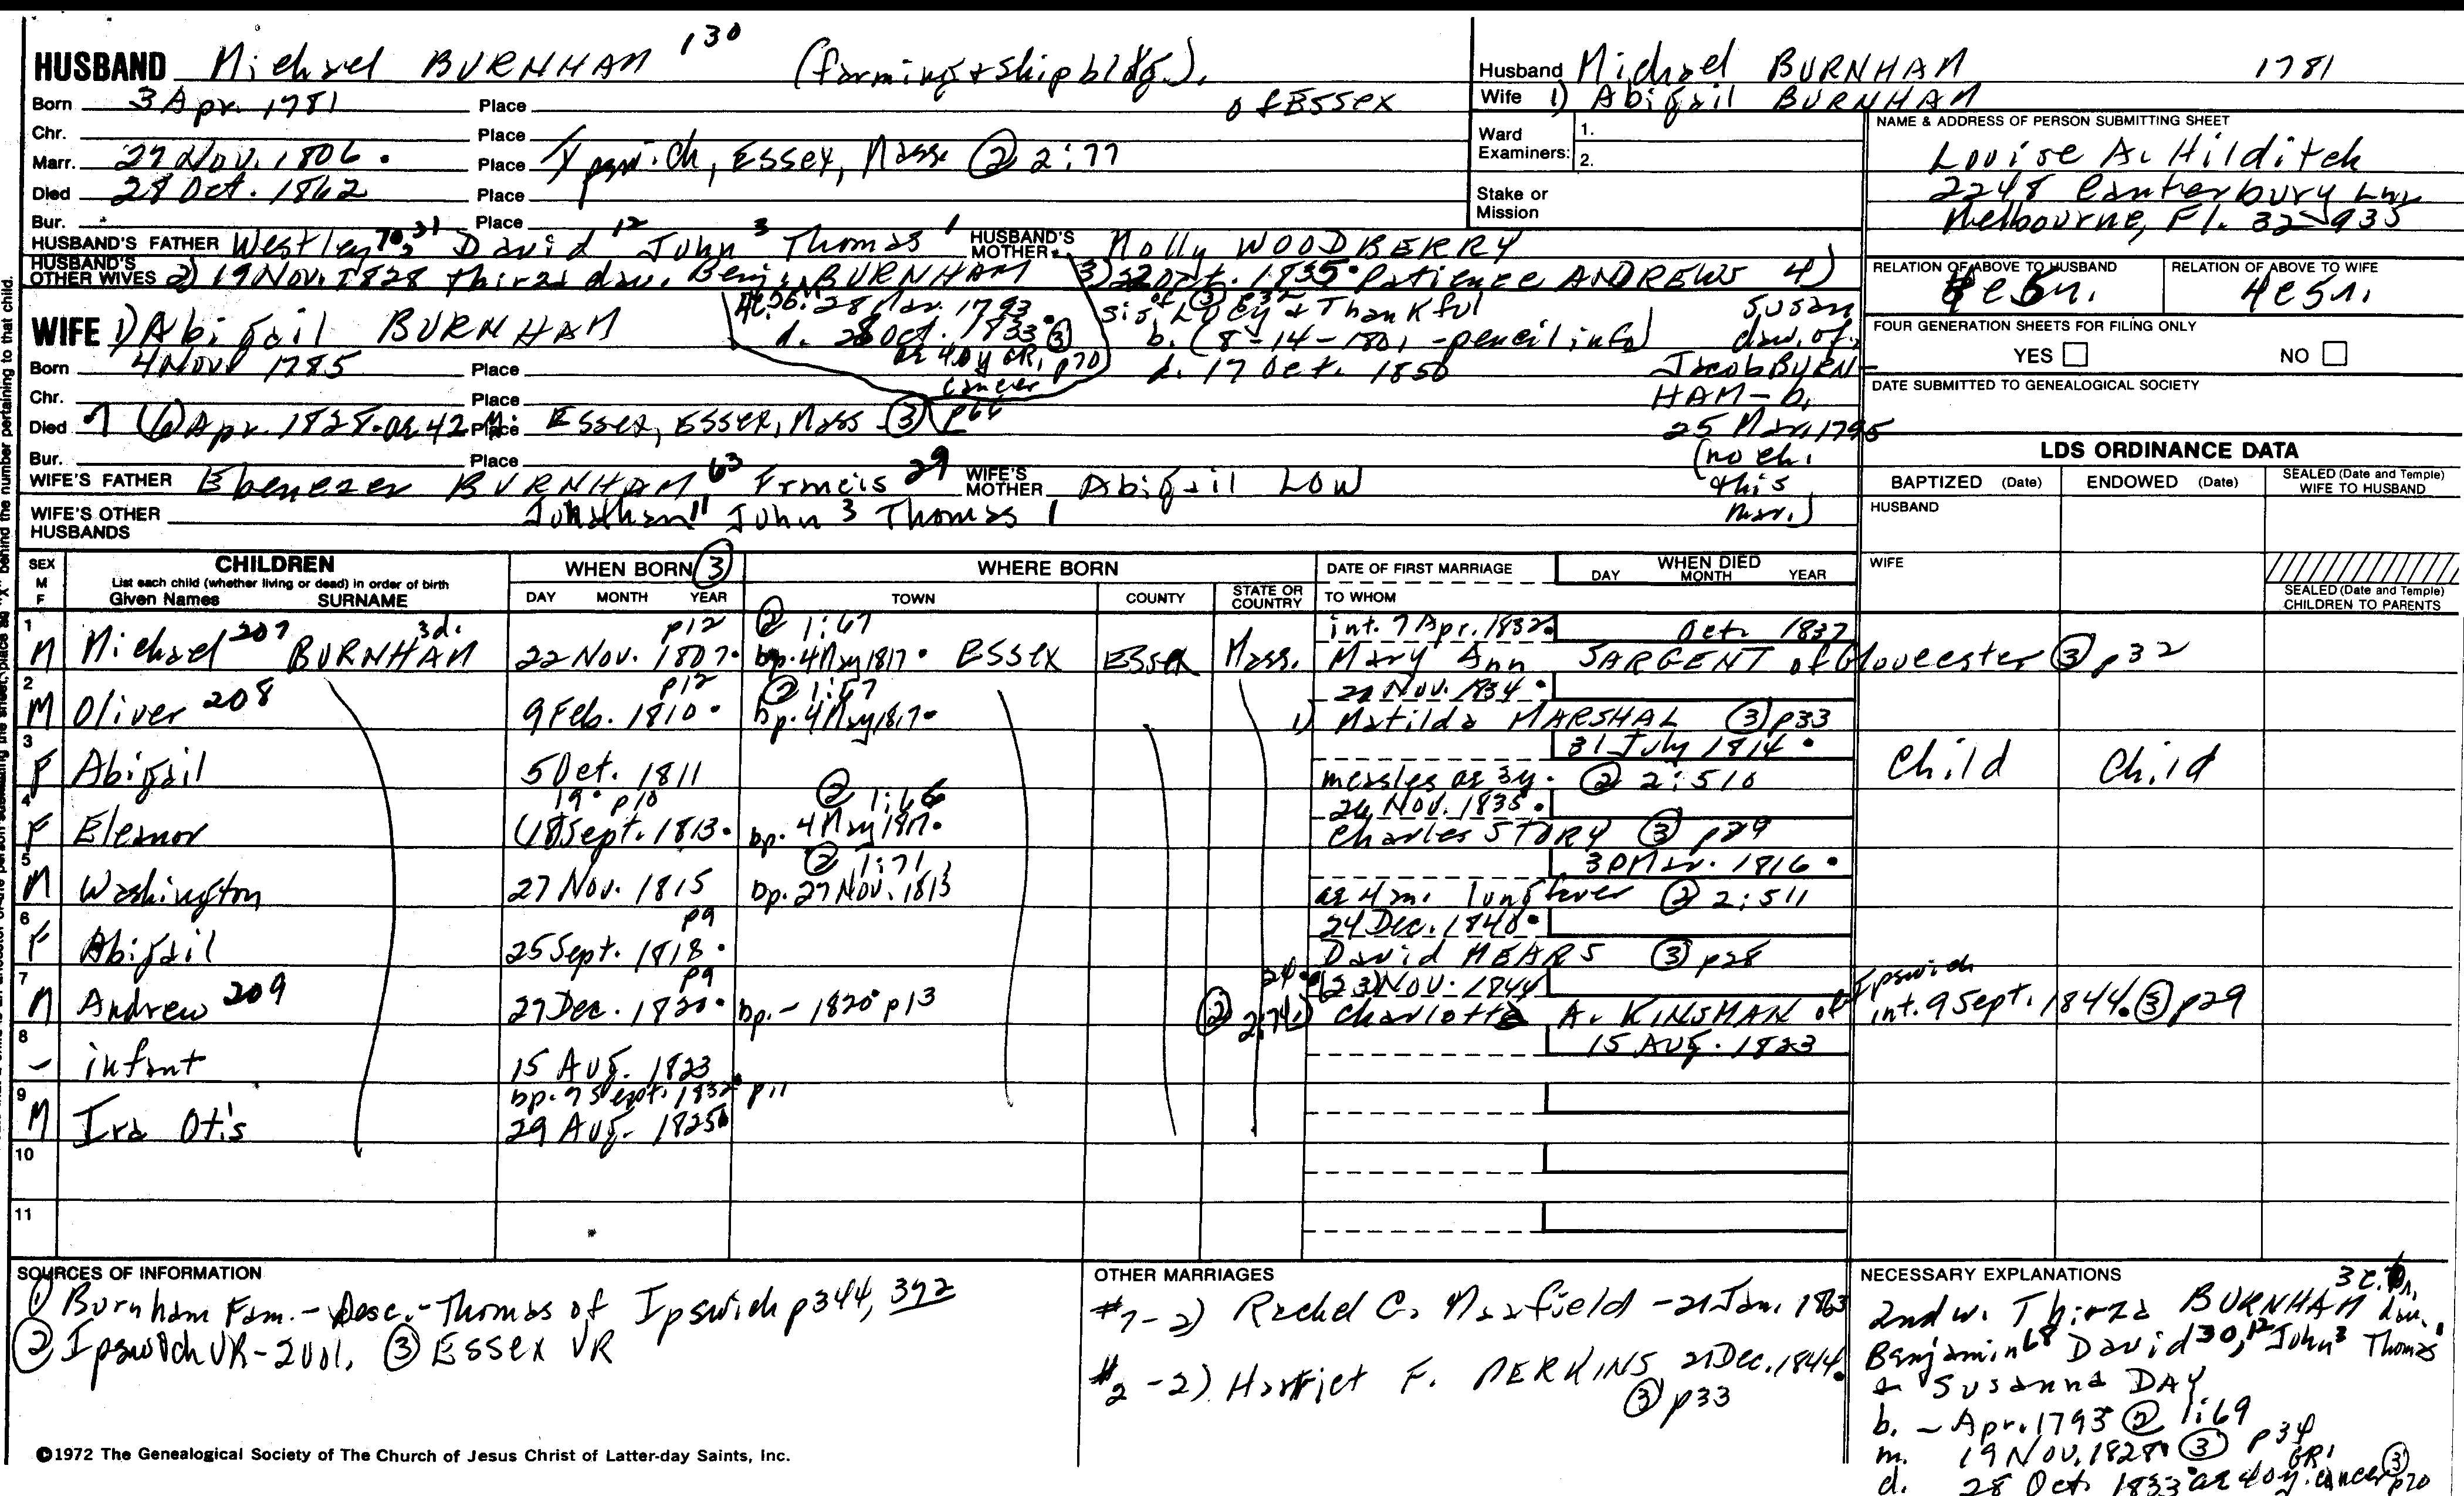 HUSBAND Michael BURNHAM 130 (farming & ship bldg.).
Born 3 Apr. 1781 Place of Essex
Chr. Place
Marr. 27 Nov. 1806. Place Ipswich, Essex, Mass. ② 2:77
Died 28 Oct. 1862 Place
Bur. Place
HUSBAND'S FATHER Westley 70, 31 David 12 John 3 Thomas 1 HUSBAND'S MOTHER Molly WOODBERRY
HUSBAND'S OTHER WIVES 2) 19 Nov. 1828 Thirza dau. Benj. BURNHAM 3) 22 Oct. 1835. Patience ANDREWS 4)
28 Mar. 1793 sis of Lucy & Thankful Susan
WIFE 1) Abigail BURNHAM d. 28 Oct. 1833. ③ b. (8-14-1801 - pencil info) dau. of
ae 40y GR1 p70
Born 4 Nov. 1785 Place cancer d. 17 Oct. 1850 Jacob BURN-
Chr. Place HAM - b.
Died 7 (6) Apr. 1828. ae 42 Place Essex, Essex, Mass ③ p66 25 Mar. 1795
Bur. Place (no ch.
WIFE'S FATHER Ebenezer BURNHAM 63 Francis 29 WIFE'S MOTHER Abigail LOW this
WIFE'S OTHER HUSBANDS Jonathan 11 John 3 Thomas 1 mar.)
Husband Michael BURNHAM 1781
Wife 1) Abigail BURNHAM
Ward Examiners: 1.
2.
Stake or Mission
NAME & ADDRESS OF PERSON SUBMITTING SHEET
Louise A. Hilditch
2248 Canterbury Ln
Melbourne, Fl. 32935
RELATION OF ABOVE TO HUSBAND RELATION OF ABOVE TO WIFE
FOUR GENERATION SHEETS FOR FILING ONLY
YES NO
DATE SUBMITTED TO GENEALOGICAL SOCIETY
LDS ORDINANCE DATA
BAPTIZED (Date) ENDOWED (Date) SEALED (Date and Temple) WIFE TO HUSBAND
HUSBAND
WIFE
SEALED (Date and Temple) CHILDREN TO PARENTS
SEX M F CHILDREN WHEN BORN ③ WHERE BORN DATE OF FIRST MARRIAGE WHEN DIED
List each child (whether living or dead) in order of birth
Given Names SURNAME DAY MONTH YEAR TOWN COUNTY STATE OR COUNTRY TO WHOM DAY MONTH YEAR
1 p12 ② 1:67 int. 7 Apr. 1832. Oct. 1837
M Michael 207 BURNHAM 3d. 22 Nov. 1807. bp. 4 May 1817. Essex Essex Mass. Mary Ann SARGENT of Gloucester ③ p32
2 p12 ② 1:67 21 Nov. 1834.
M Oliver 208 9 Feb. 1810. bp. 4 May 1817. 1) Matilda MARSHAL ③ p33
3 31 July 1814.
F Abigail 5 Oct. 1811 measles ae 3y. ② 2:510 Child Child
4 19. p10 ② 1:66 26 Nov. 1835.
F Eleanor (18 Sept. 1813. bp. 4 May 1817. Charles STORY ③ p29
5 ② 1:71 30 Mar. 1816.
M Washington 27 Nov. 1815 bp. 27 Nov. 1815 ae 4m. lung fever ② 2:511
6 p9 24 Dec. 1840.
F Abigail 25 Sept. 1818. David MEARS ③ p28
7 p9 24. (23) Nov. 1844
M Andrew 209 27 Dec. 1820. bp. - 1820. p13 ② 2:74 1) Charlotte A. KINSMAN of Ipswich int. 9 Sept. 1844. ③ p29
8 15 Aug. 1823
- infant 15 Aug. 1823
9 bp. 9 Sept. 1832. p11
M Ira Otis 29 Aug. 1825.
10
11
SOURCES OF INFORMATION
① Burnham Fam. - Desc. - Thomas of Ipswich p344, 392
② Ipswich VR - 2 vol. ③ Essex VR
OTHER MARRIAGES
#7-2) Rachel C. Maxfield - 21 Jan. 1863
#2-2) Harriet F. PERKINS 21 Dec. 1844.
③ p33
NECESSARY EXPLANATIONS
2nd w. Thirza BURNHAM dau.
Benjamin 68 David 30, 12 John 3 Thomas 1
& Susanna DAY
b. - Apr. 1793 ② 1:69
m. 19 Nov. 1828. ③ p34
d. 28 Oct. 1833. ae 40y. cancer GR1 ③ p70
©1972 The Genealogical Society of The Church of Jesus Christ of Latter-day Saints, Inc.